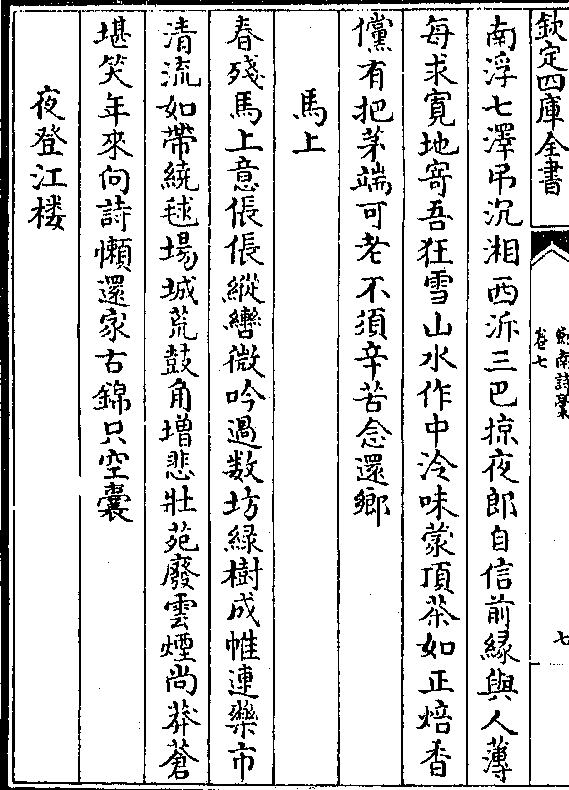 欽定四庫全書
劍南詩稾
卷七
七
南浮七澤弔沉湘西泝三巴掠夜郎自信前緣與人薄
每求寛地寄吾狂雪山水作中泠味蒙頂茶如正焙香
儻有把茅端可老不須辛苦念還鄉
馬上
春殘馬上意倀倀縱轡微吟過數坊綠樹成帷連藥市
清流如帶繞毬場城荒鼓角增悲壯苑廢雲煙尚莽蒼
堪笑年來向詩懶還家古錦只空囊
夜登江樓